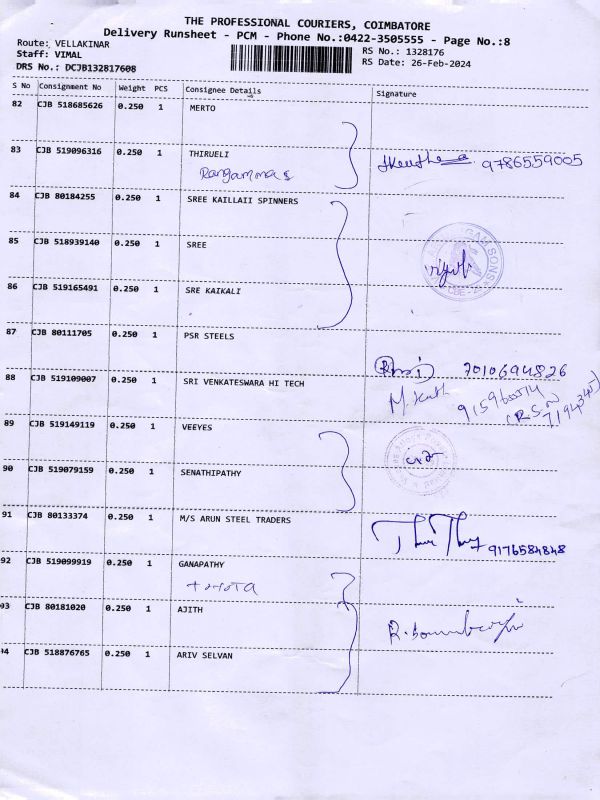 THE PROFESSIONAL COURIERS, COIMBATORE
Delivery Runsheet - PCM - Phone No.:0422-3505555 - Page No.:8
Route: VELLAKINAR RS No.: 1328176
Staff: VIMAL RS Date: 26-Feb-2024
DRS No.: DCJB132817608
S No Consignment No Weight PCS Consignee Details Signature
82 CJB 518685626 0.250 1 MERTO
83 CJB 519096316 0.250 1 THIRUELI 9786559005
Rangammas
84 CJB 80184255 0.250 1 SREE KAILLAII SPINNERS
85 CJB 518939140 0.250 1 SREE
86 CJB 519165491 0.250 1 SRE KAIKALI
87 CJB 80111705 0.250 1 PSR STEELS 7010694826
88 CJB 519109007 0.250 1 SRI VENKATESWARA HI TECH
89 CJB 519149119 0.250 1 VEEYES
90 CJB 519079159 0.250 1 SENATHIPATHY
91 CJB 80133374 0.250 1 M/S ARUN STEEL TRADERS 9176584848
92 CJB 519099919 0.250 1 GANAPATHY
TOYOTA
93 CJB 80181020 0.250 1 AJITH
94 CJB 518876765 0.250 1 ARIV SELVAN